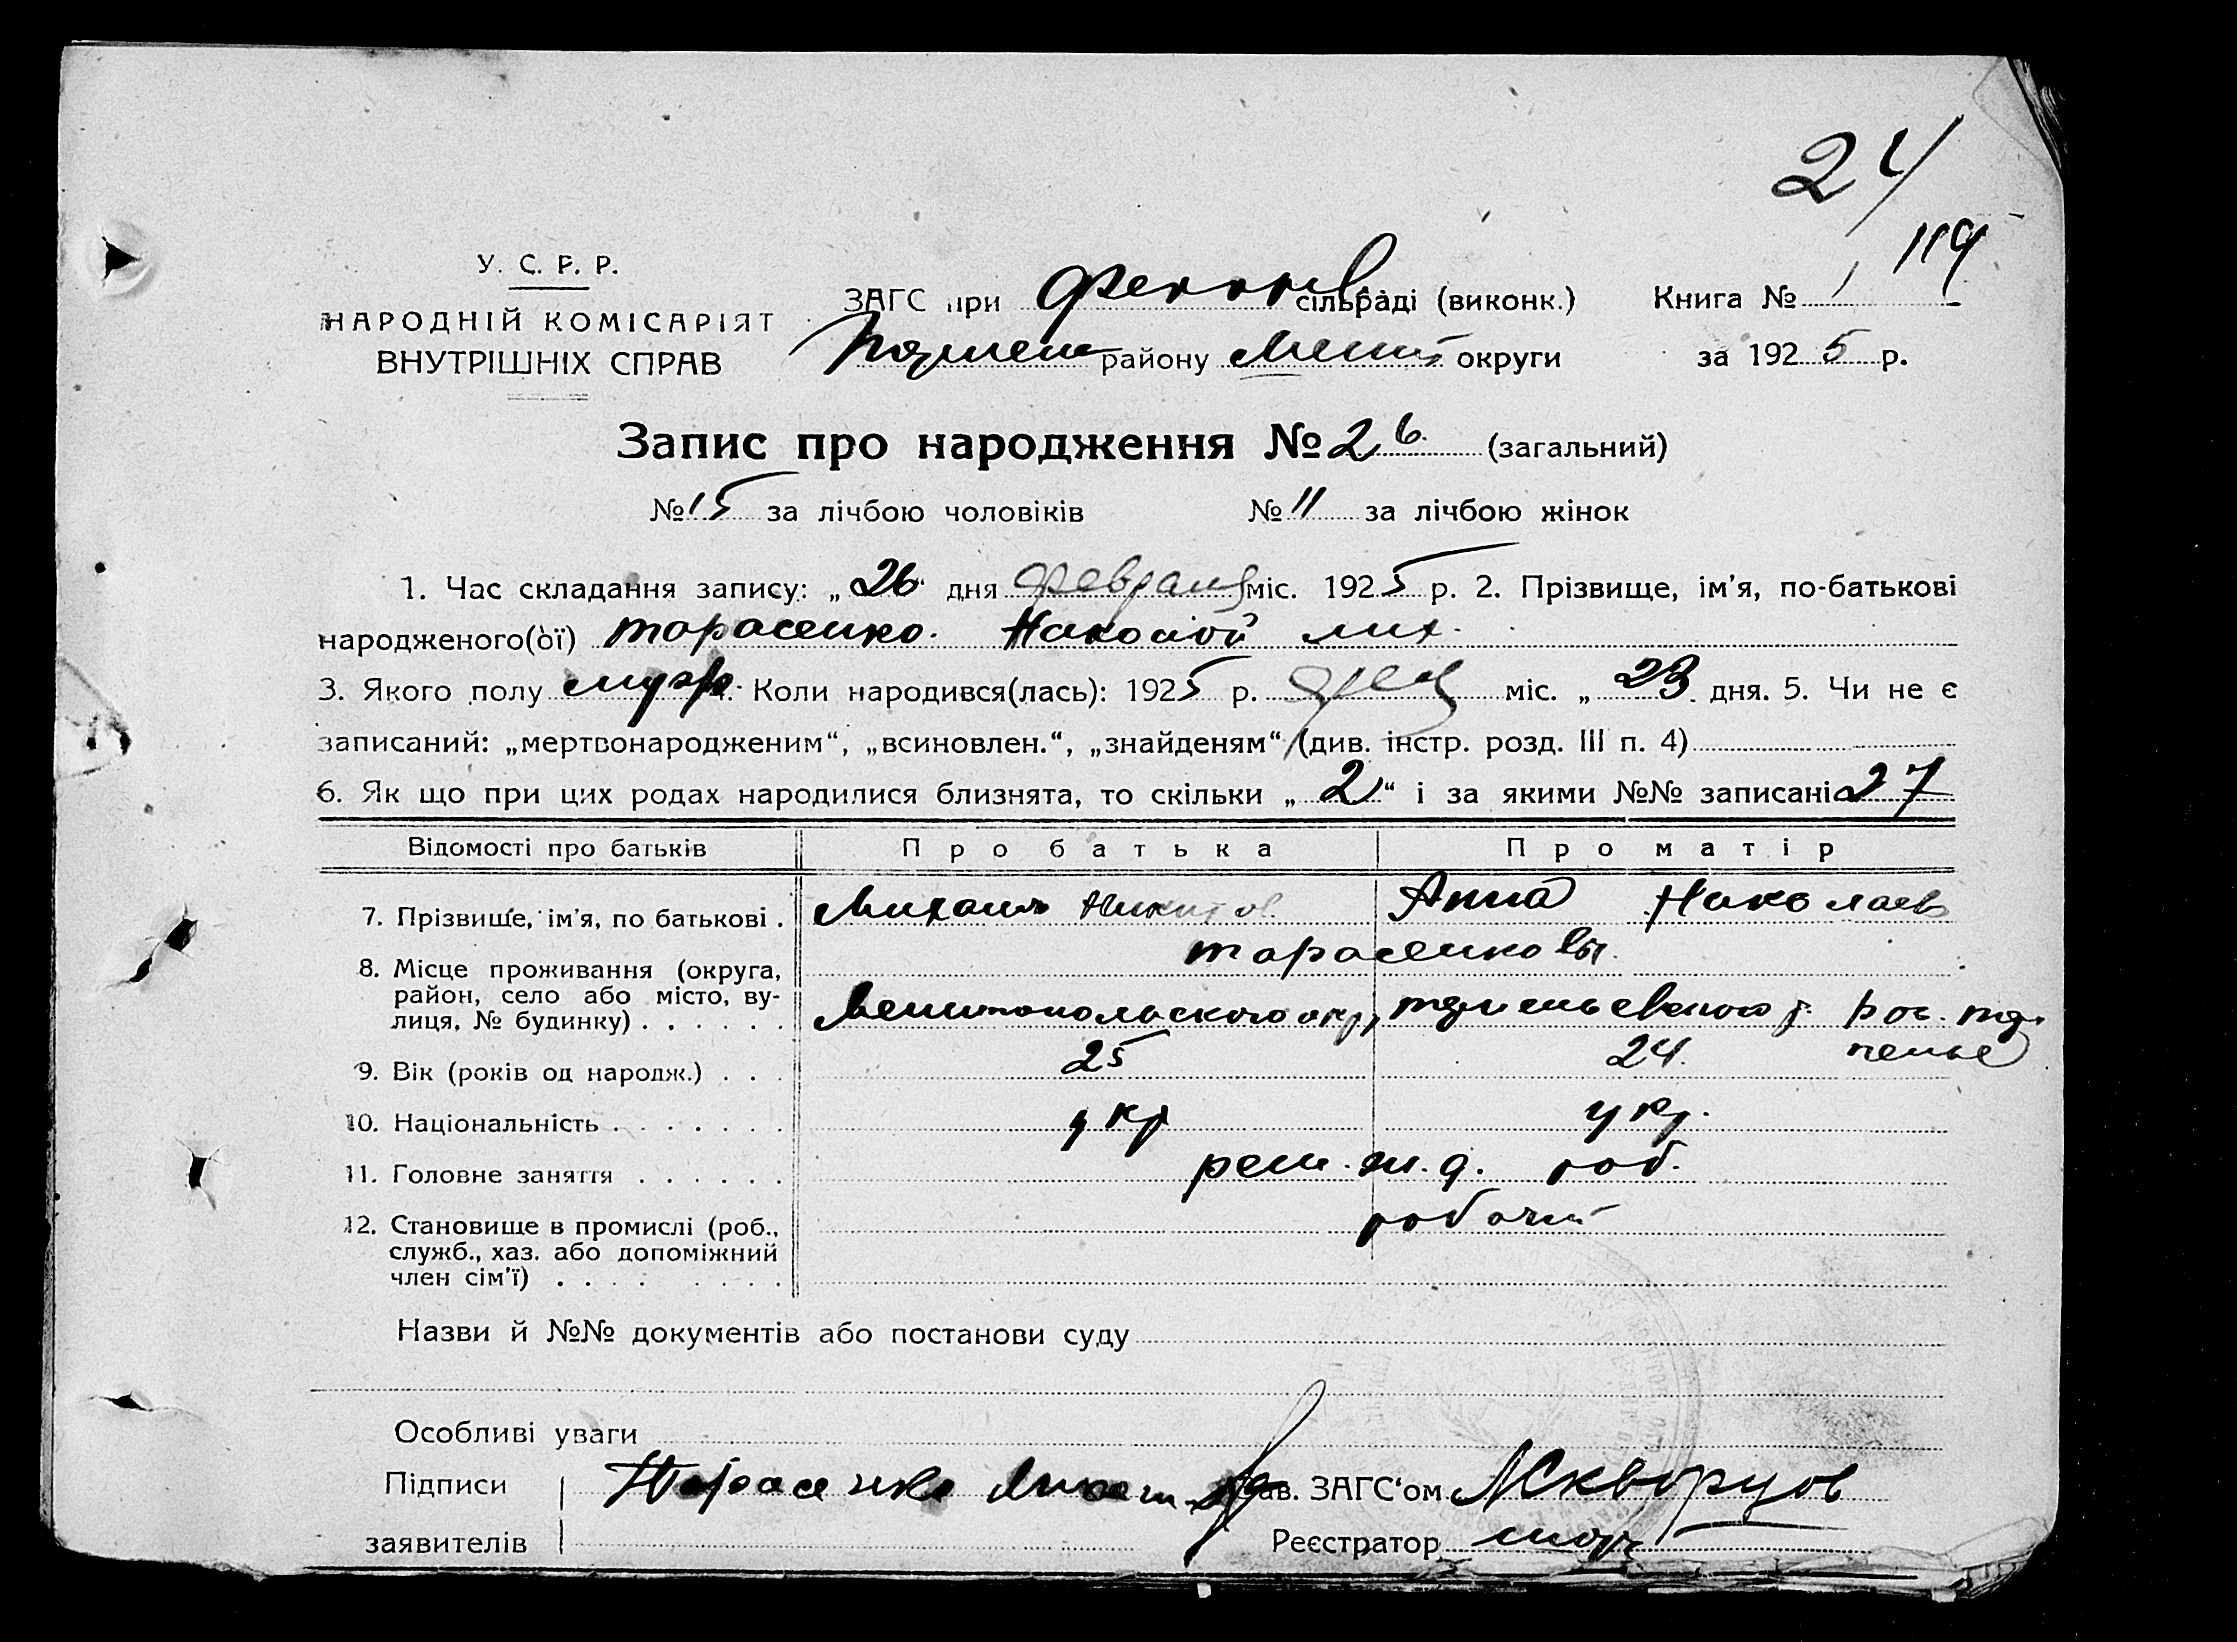 24
119
У. С. Р. Р.
НАРОДНІЙ КОМІСАРІЯТ
ВНУТРІШНІХ СПРАВ
ЗАГС при сільраді (виконк.) Книга № 1
району Мелит округи за 1925 р.
Запис про народження № 26 (загальний)
№ 15 за лічбою чоловіків № 11 за лічбою жінок
1. Час складання запису: „26" дня февраля міс. 1925 р. 2. Прізвище, ім'я, по-батькові
народженого(ої) Тарасенко Мих.
3. Якого полу муж. Коли народився(лась): 1925 р. міс. „23 дня. 5. Чи не є
записаний: „мертвонародженим“, „всиновлен.“, „знайденям“ (див. інстр. розд. III п. 4)
6. Як що при цих родах народилися близнята, то скільки „2“ і за якими №№ записані 27
Відомості про батьків Про батька Про матір
7. Прізвище, ім'я, по батькові . Михаил Никитов. Анна Николаев
Тарасенковы.
8. Місце проживання (округа, район, село або місто, вулиця, № будинку) . . . . . . Мелитопольского окр,
9. Вік (років од народж.) . . . 25 24.
10. Національність . . . . . . . укр укр.
11. Головне заняття . . . . . . рем. ж.д. раб.
12. Становище в промислі (роб., служб., хаз. або допоміжний член сім'ї) . . . . . . . . рабочий
Назви й №№ документів або постанови суду
Особливі уваги
Підписи Тарасенко Зав. ЗАГС'ом МСкворцов
заявителів Реєстратор